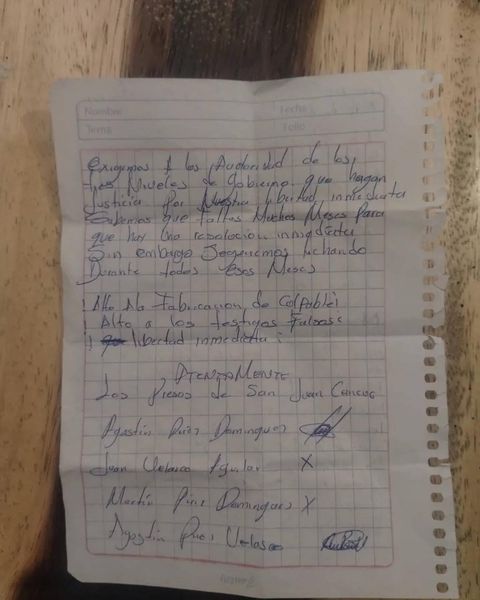 Nombre Fecha
Tema Folio
Exigemos A las Autoridad de los
tres Niveles de Gobierno que hagan
Justicia Por Nuestra libertad inmediata
Sabemos que faltas Muchos Meses Para
que hay Una resolucion inmediata
Sin embargo Seguiremos luchando
Durante todos Esos Meses
¡Alto A la Fabricacion de Colpables!
¡Alto a los testigos Falsos!
¡ libertad inmediata!
ATENTAMENTE
Los Presos de San Juan Cancuc
Agustin Pérez Dominguez
Juan Velasco Aguilar X
Martin Pérez Dominguez X
Agostin Pérez Velasco